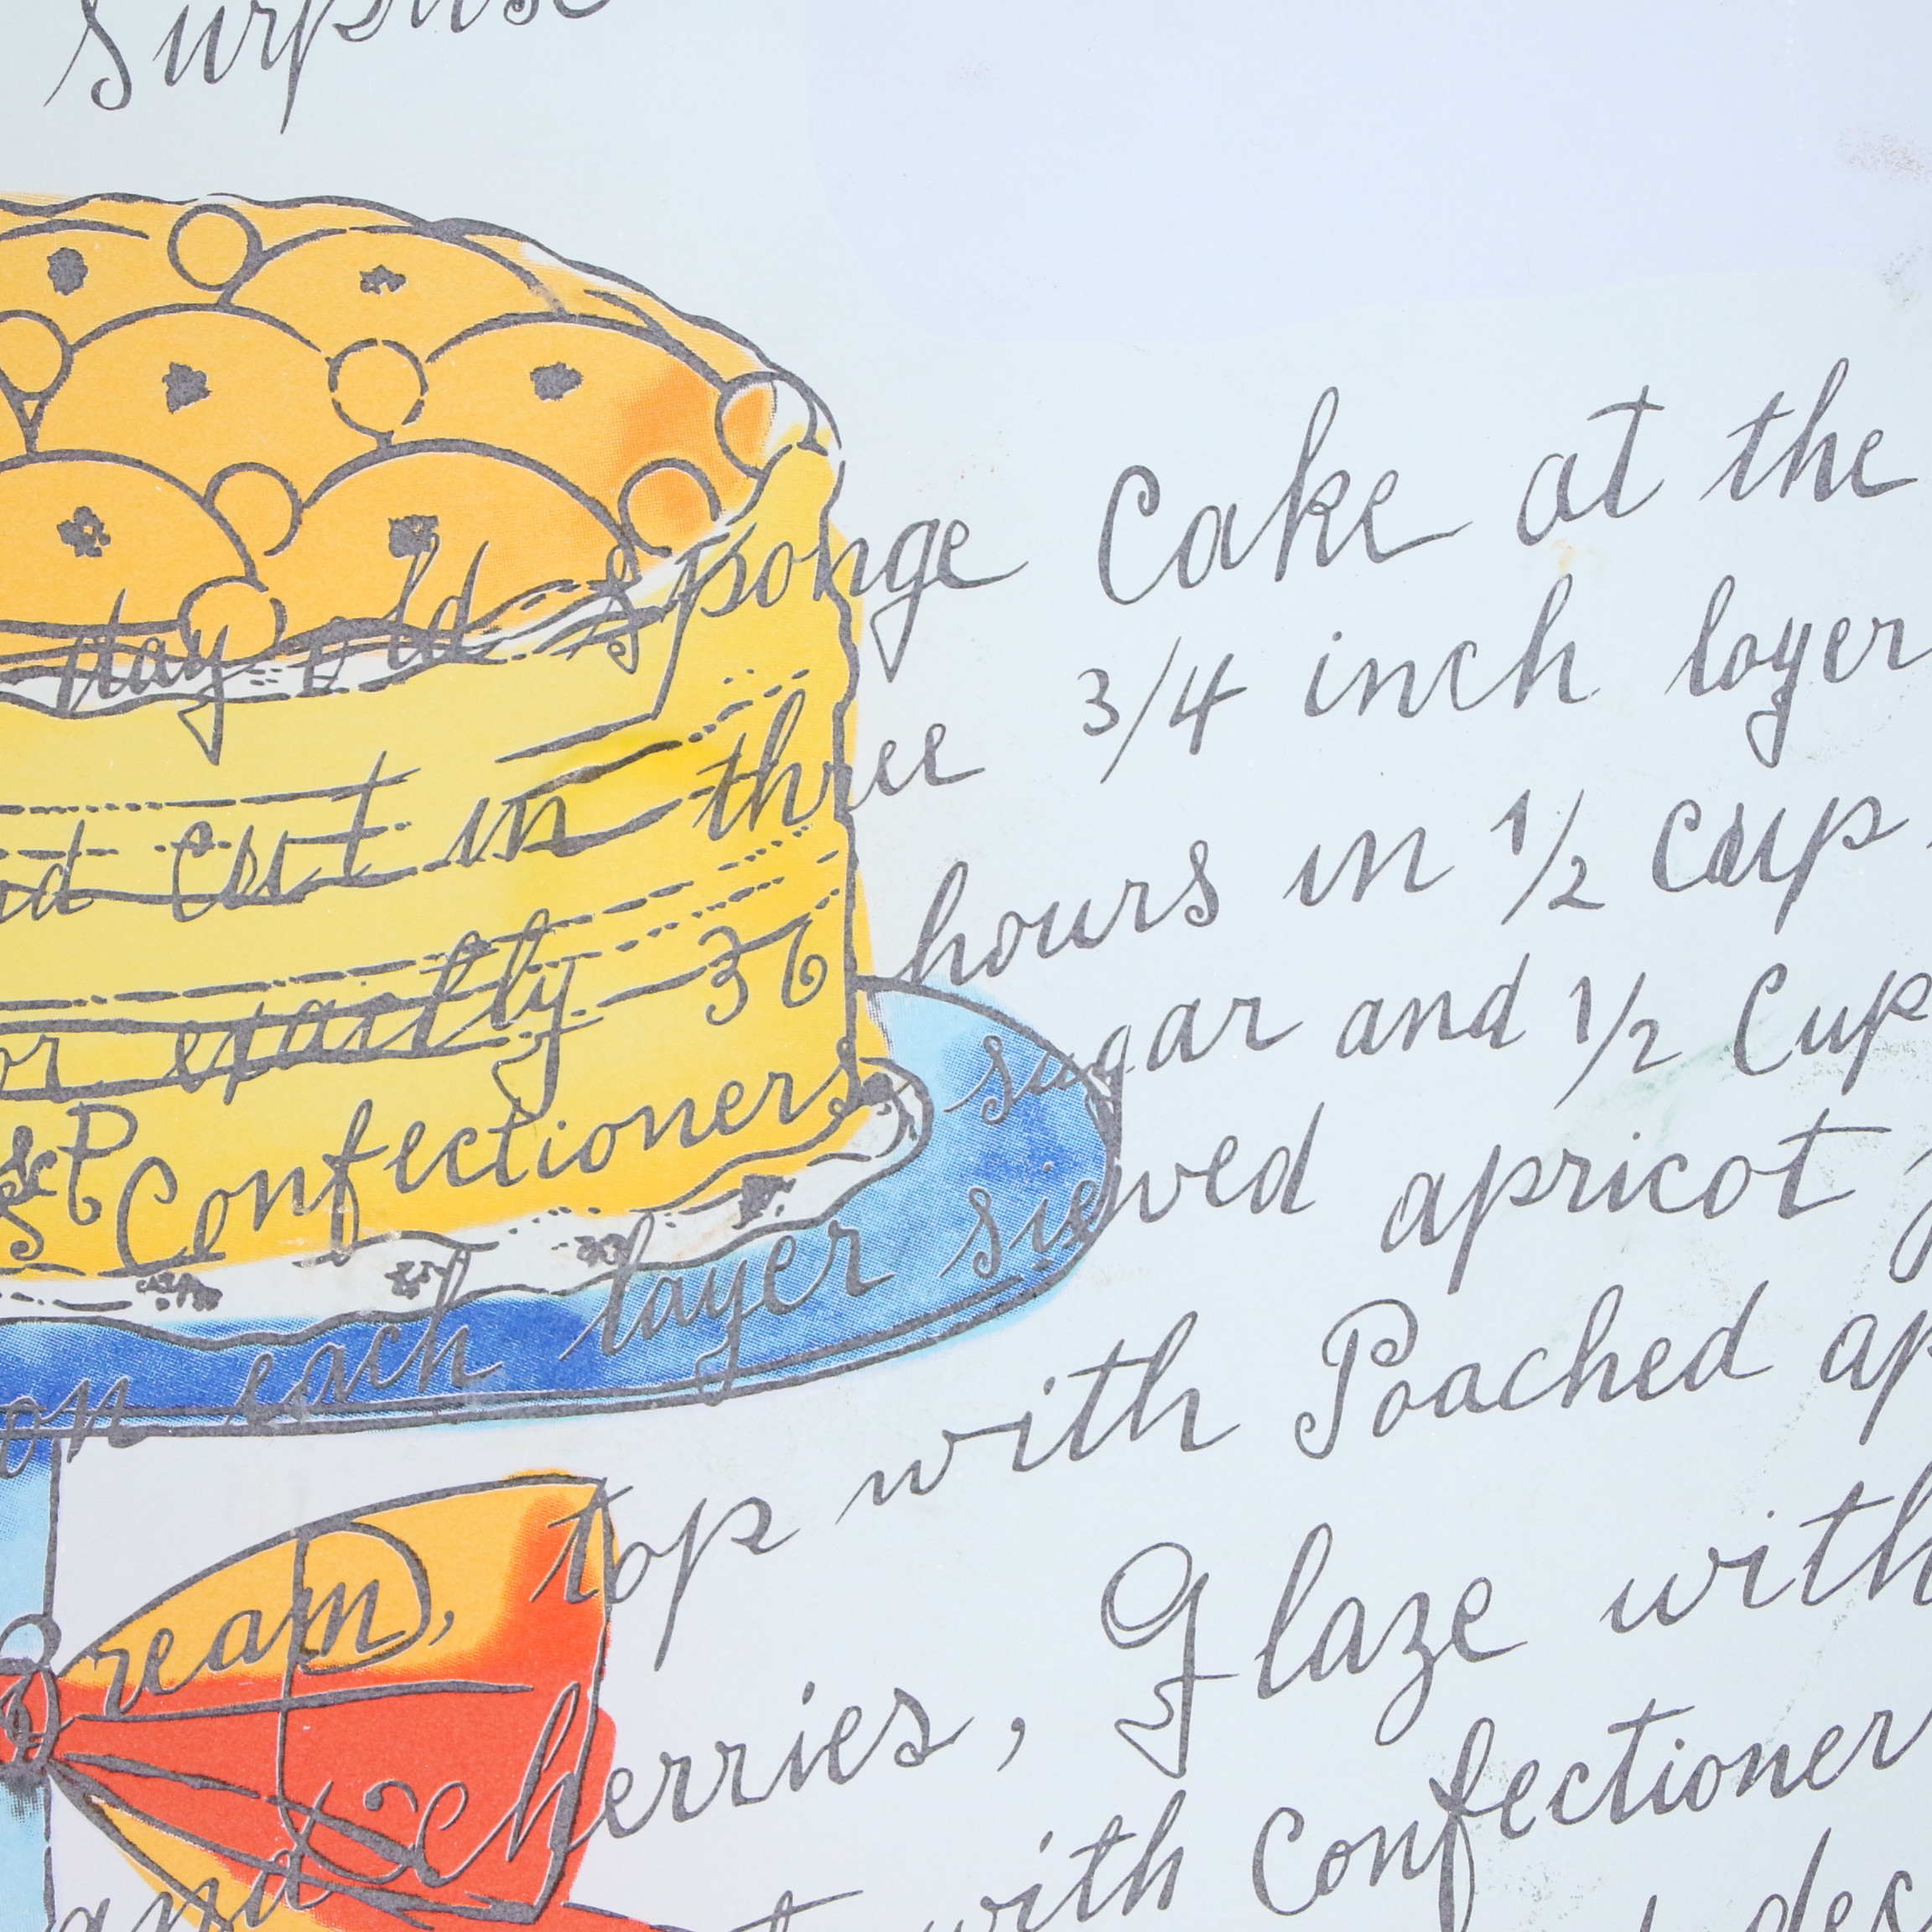 Surprise
day old Sponge Cake at the
cut in three 3/4 inch layer
or exactly 36 hours in 1/2 cup
Confectioners sugar and 1/2 Cup
on each layer sieved apricot
ream, top with Poached ap
and cherries, Glaze with
with Confectioner
des